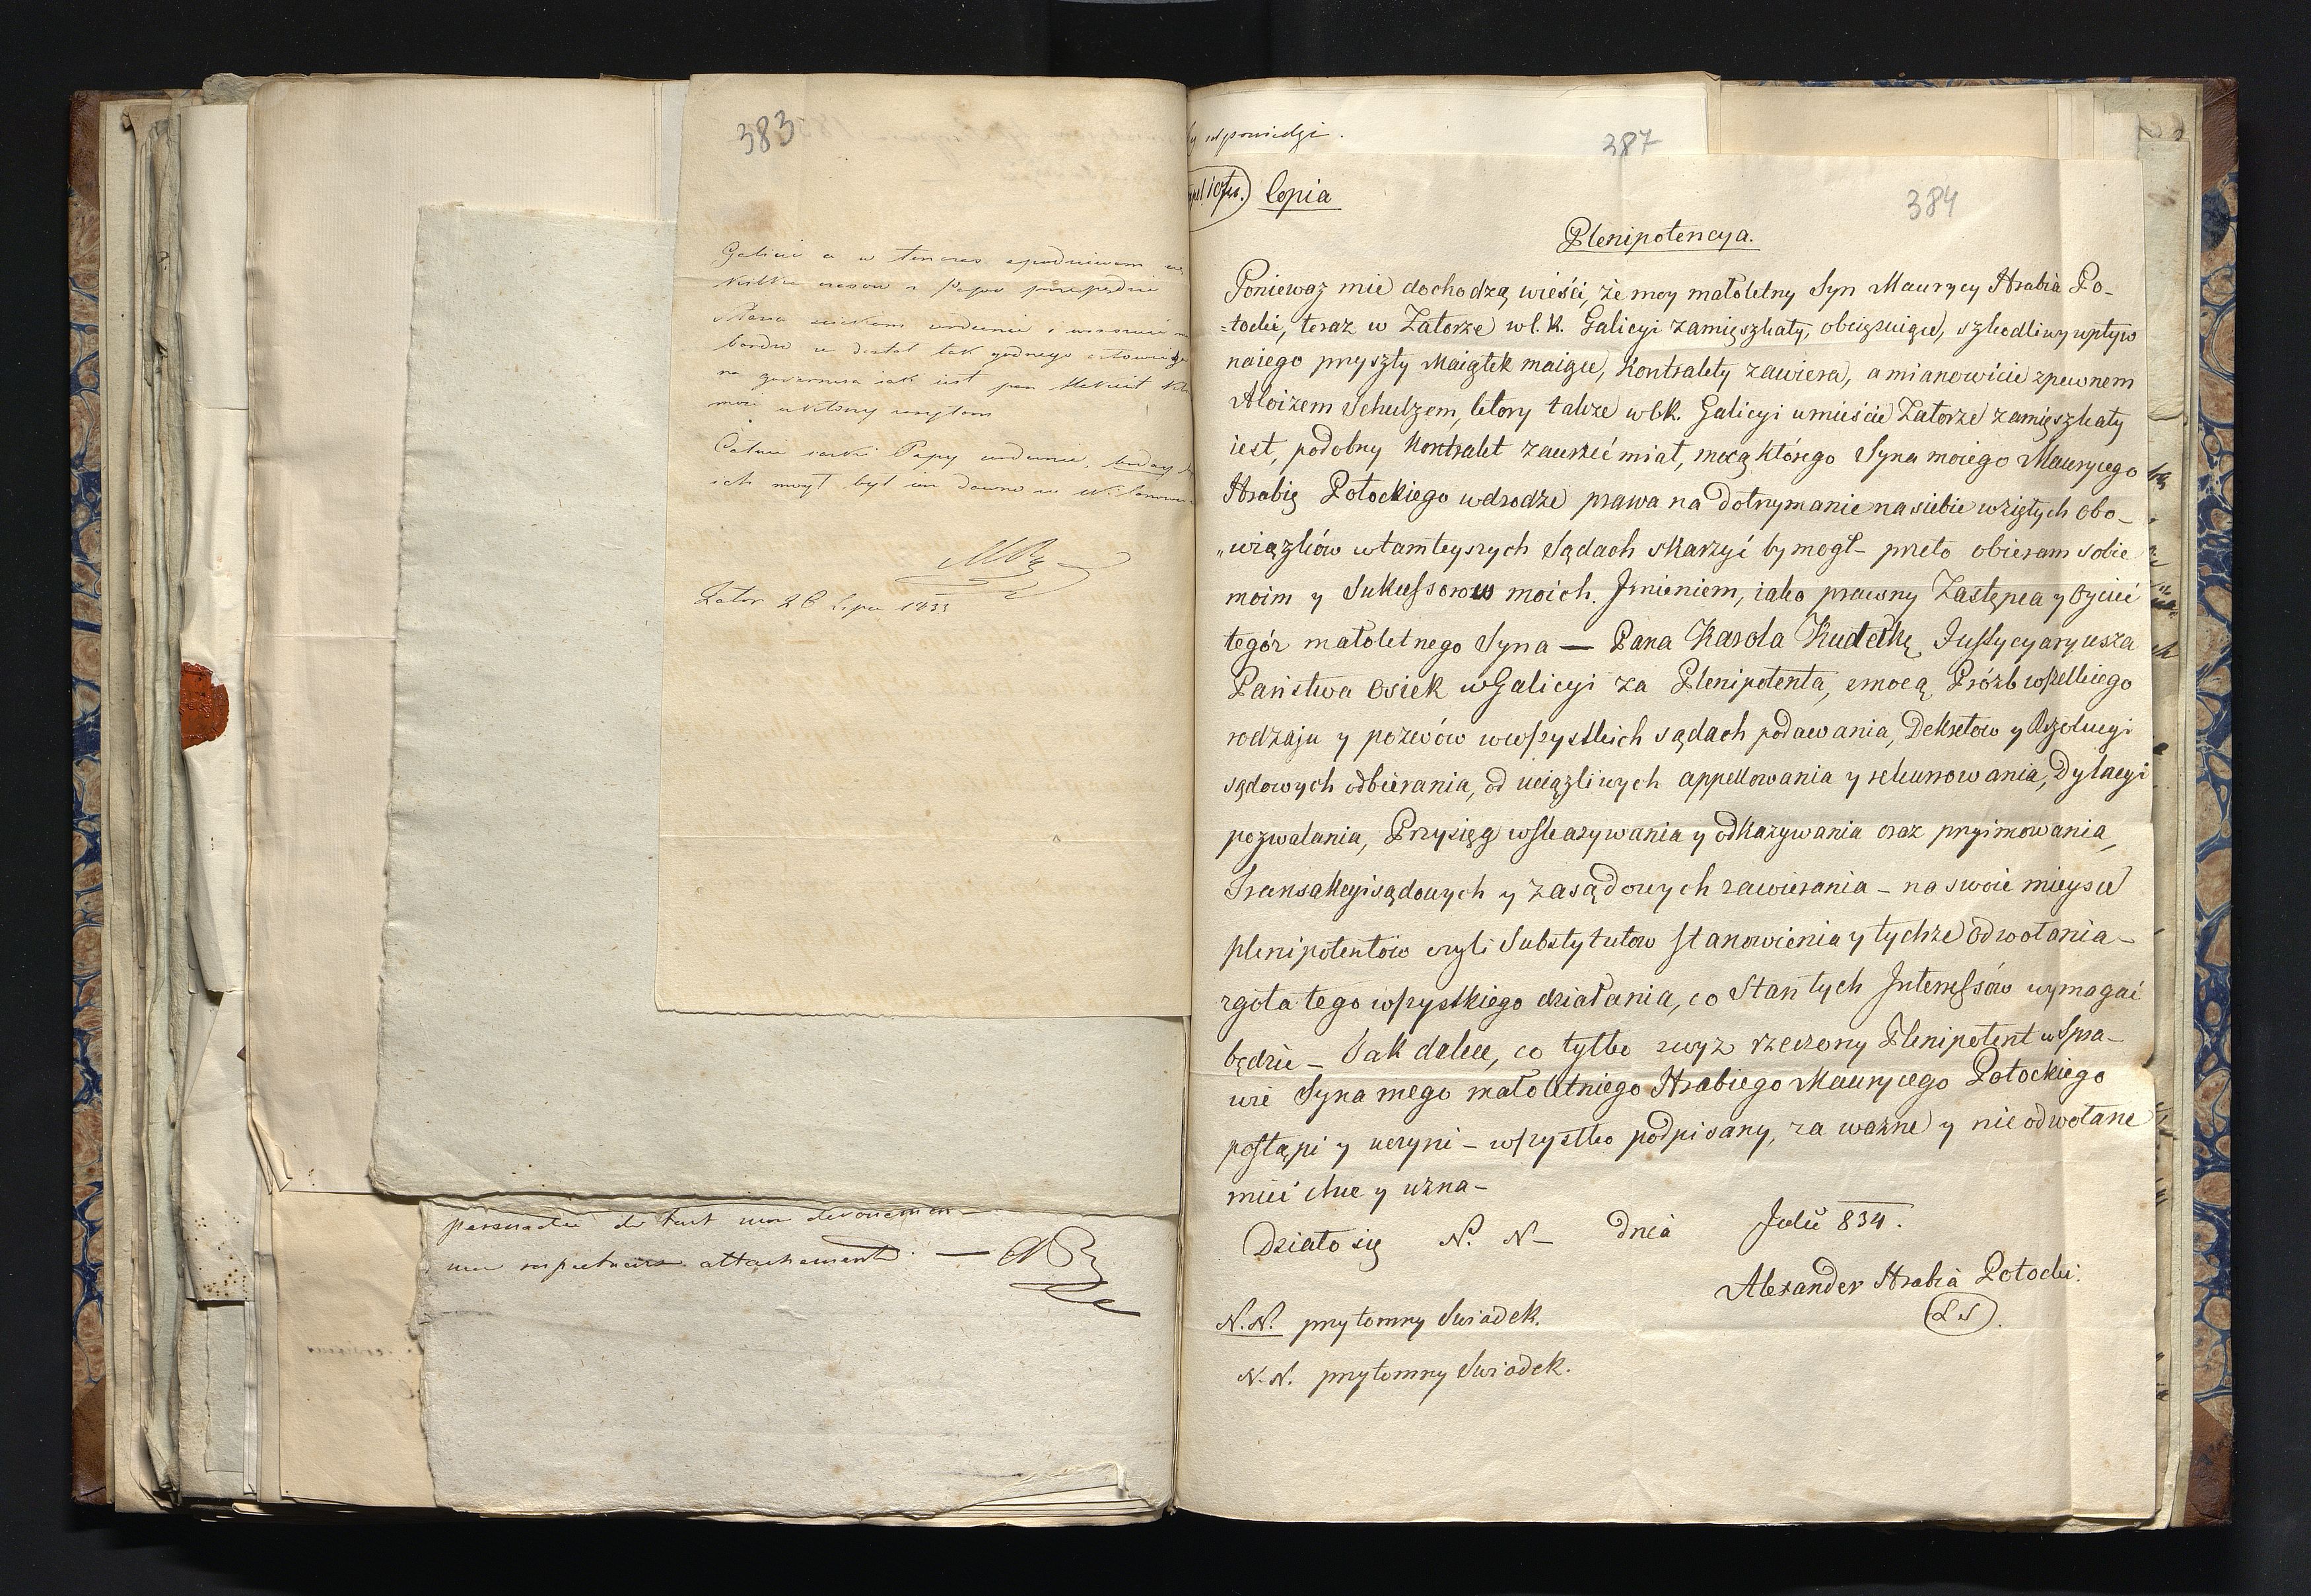 383
Galicii a w tenczas spodziewam
kilka czasów z Papą przepędzić
bardzo ze dostał tak godnego człowieka
na guwernera jak jest pan
moie ukłony
Całuię rączki Papy
Zator 26 Lipca 1833
persuadée de tout mon devouement
mon respectueux attachement. —
odpowiedzi.
387
Copia
384
Plenipotencya.
Poniewaz mie dochodzą wieści, że moy małoletny Syn Maurycy Hrabia Po-
=tocki, teraz w Zatorze w l. k. Galicyi zamięszkały, obciążaiące, szkodliwy wpływ
naiego przyszły Maiątek maiące, Kontrakty zawiera, a mianowicie z pewnem
Aloizem Schulzem, ktory takze w l. k. Galicyi umieście Zatorze zamięszkały
iest, podobny Kontrakt zawrzeć miał, mocą którego Syna moiego Maurycego
Hrabię Potockiego wdrodze prawa na dotrzymanie na siebie wziętych obo-
„wiązków wtamteyszych Sądach skarzyć by mogł – przeto obieram sobie
moim y Sukcessorow moich Jmieniem, iako prawny Zastępca y Oyciec
tegóz małoletnego Syna — Pana Karola Kudelkę, Justycyaryusza
Państwa Osiek w Galicyi za Plenipotenta, z mocą Prózb wszelkiego
rodzaju y pozwów wwszystkich sądach podawania, Dekretow y Rezolucyi
sądowych odbierania, od uciązliwych appellowania y rekurrowania, Dylacyi
pozwalania, Przysięg wskazywania y odkazywania oraz pryimowania,
Transakcyi sądowych y zasądowych zawierania – na swoie mieysce
plenipotentów czyli Substytutow stanowienia y tychze odwołania –
zgoła tego wszystkiego działania, co Stan tych Interessów wymagać
będzie – Jak dalece, co tylko zwyz rzeczony Plenipotent w Spra-
wie Syna mego małoletniego Hrabiego Maurycego Potockiego
postąpi y uczyni – wszystko podpisany, za wazne y nieodwołane
mieć chce y uzna –
Działo się N. N – dnia Julii 834.
Alexander Hrabia Potocki.
L S
N. N. przytomny Swiadek.
N. N. przytomny Swiadek.